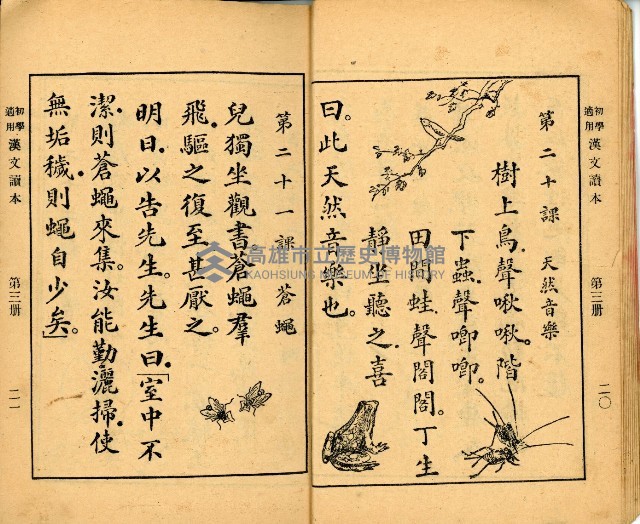 初學適用 漢文讀本 第三册 二〇
第二十課 天然音樂
樹上鳥聲啾啾。階
下蟲聲唧唧。
田間蛙聲閣閣。丁生
靜坐聽之。喜
曰。此天然音樂也。
第二十一課 蒼蠅
兒獨坐觀書。蒼蠅羣
飛。驅之復至。甚厭之。
明日。以告先生。先生曰。「室中不
潔。則蒼蠅來集。汝能勤灑掃。使
無垢穢。則蠅自少矣。」
初學適用 漢文讀本 第三册 二一
高雄市立歷史博物館
KAOHSIUNG MUSEUM OF HISTORY